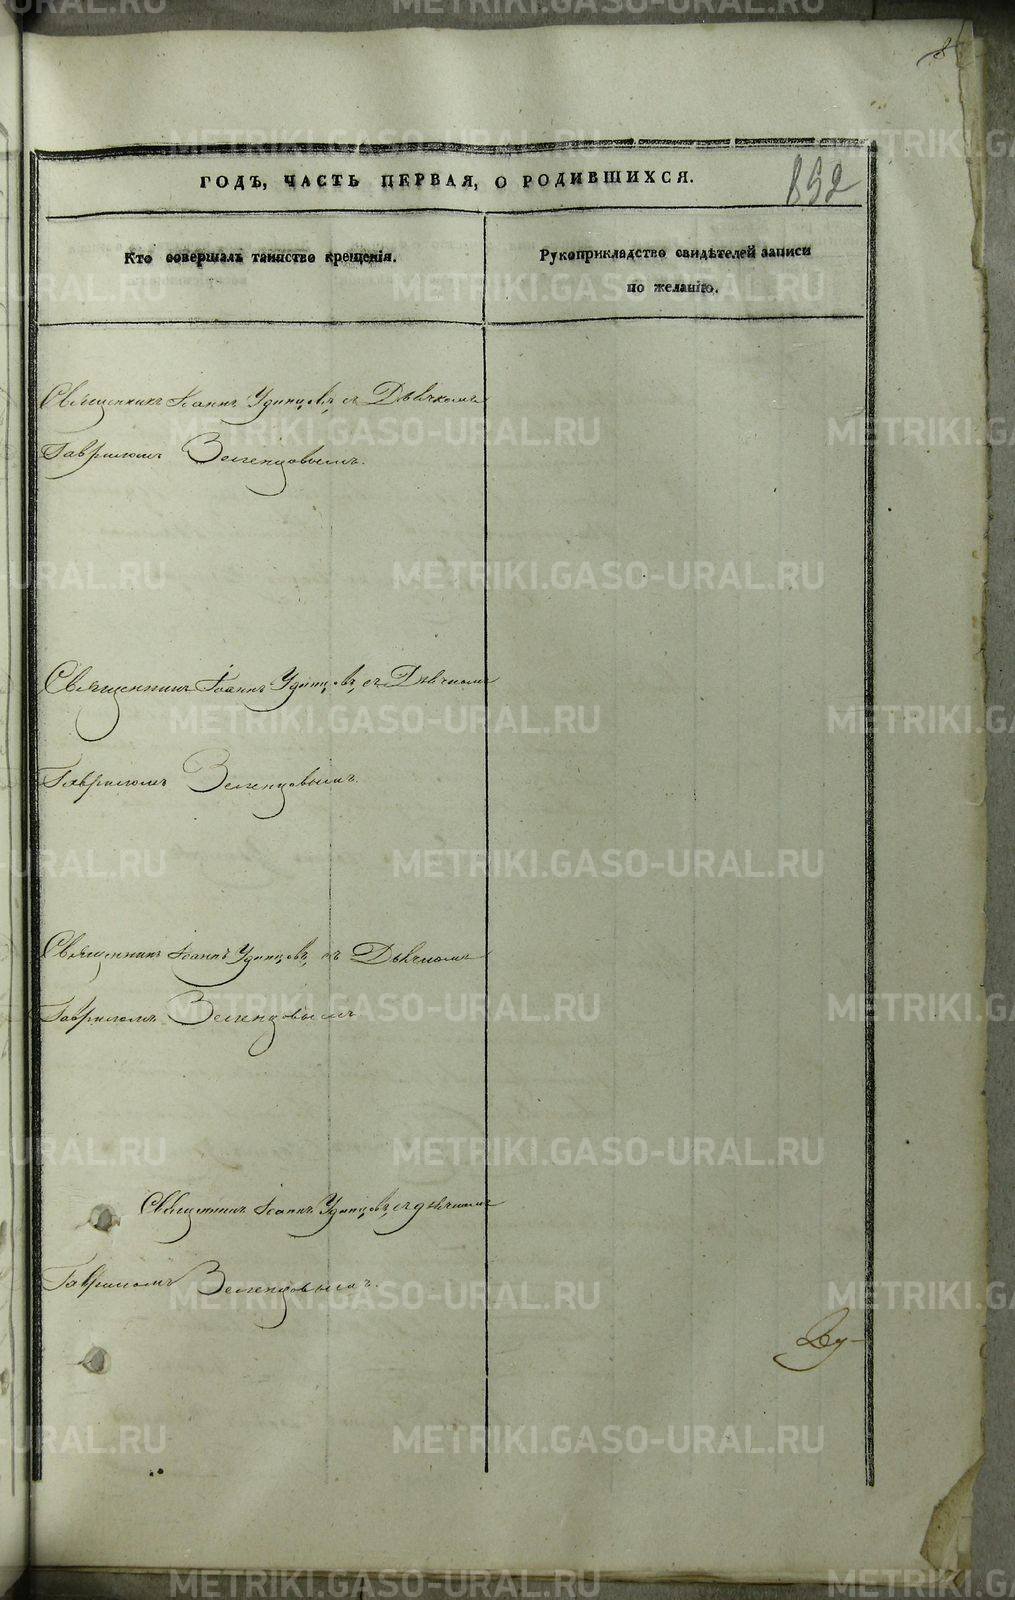 852
ГОДЪ, ЧАСТЬ ПЕРВАЯ, О РОДИВШИХСЯ.
Кто совершалъ таинство крещенія.
Рукоприкладство свидѣтелей записи
по желанію.
Священникъ Іоаннъ Удинцовъ, съ Дьячкомъ
Гавриломъ Зеленцовымъ.
Священникъ Іоаннъ Удинцовъ, съ Дьячкомъ
Гавриломъ Зеленцовымъ.
Священникъ Іоаннъ Удинцовъ, съ Дьячкомъ
Гавриломъ Зеленцовымъ
Священникъ Іоаннъ Удинцовъ, съ дьячкомъ
Гавриломъ Зеленцовымъ.
METRIKI.GASO-URAL.RU